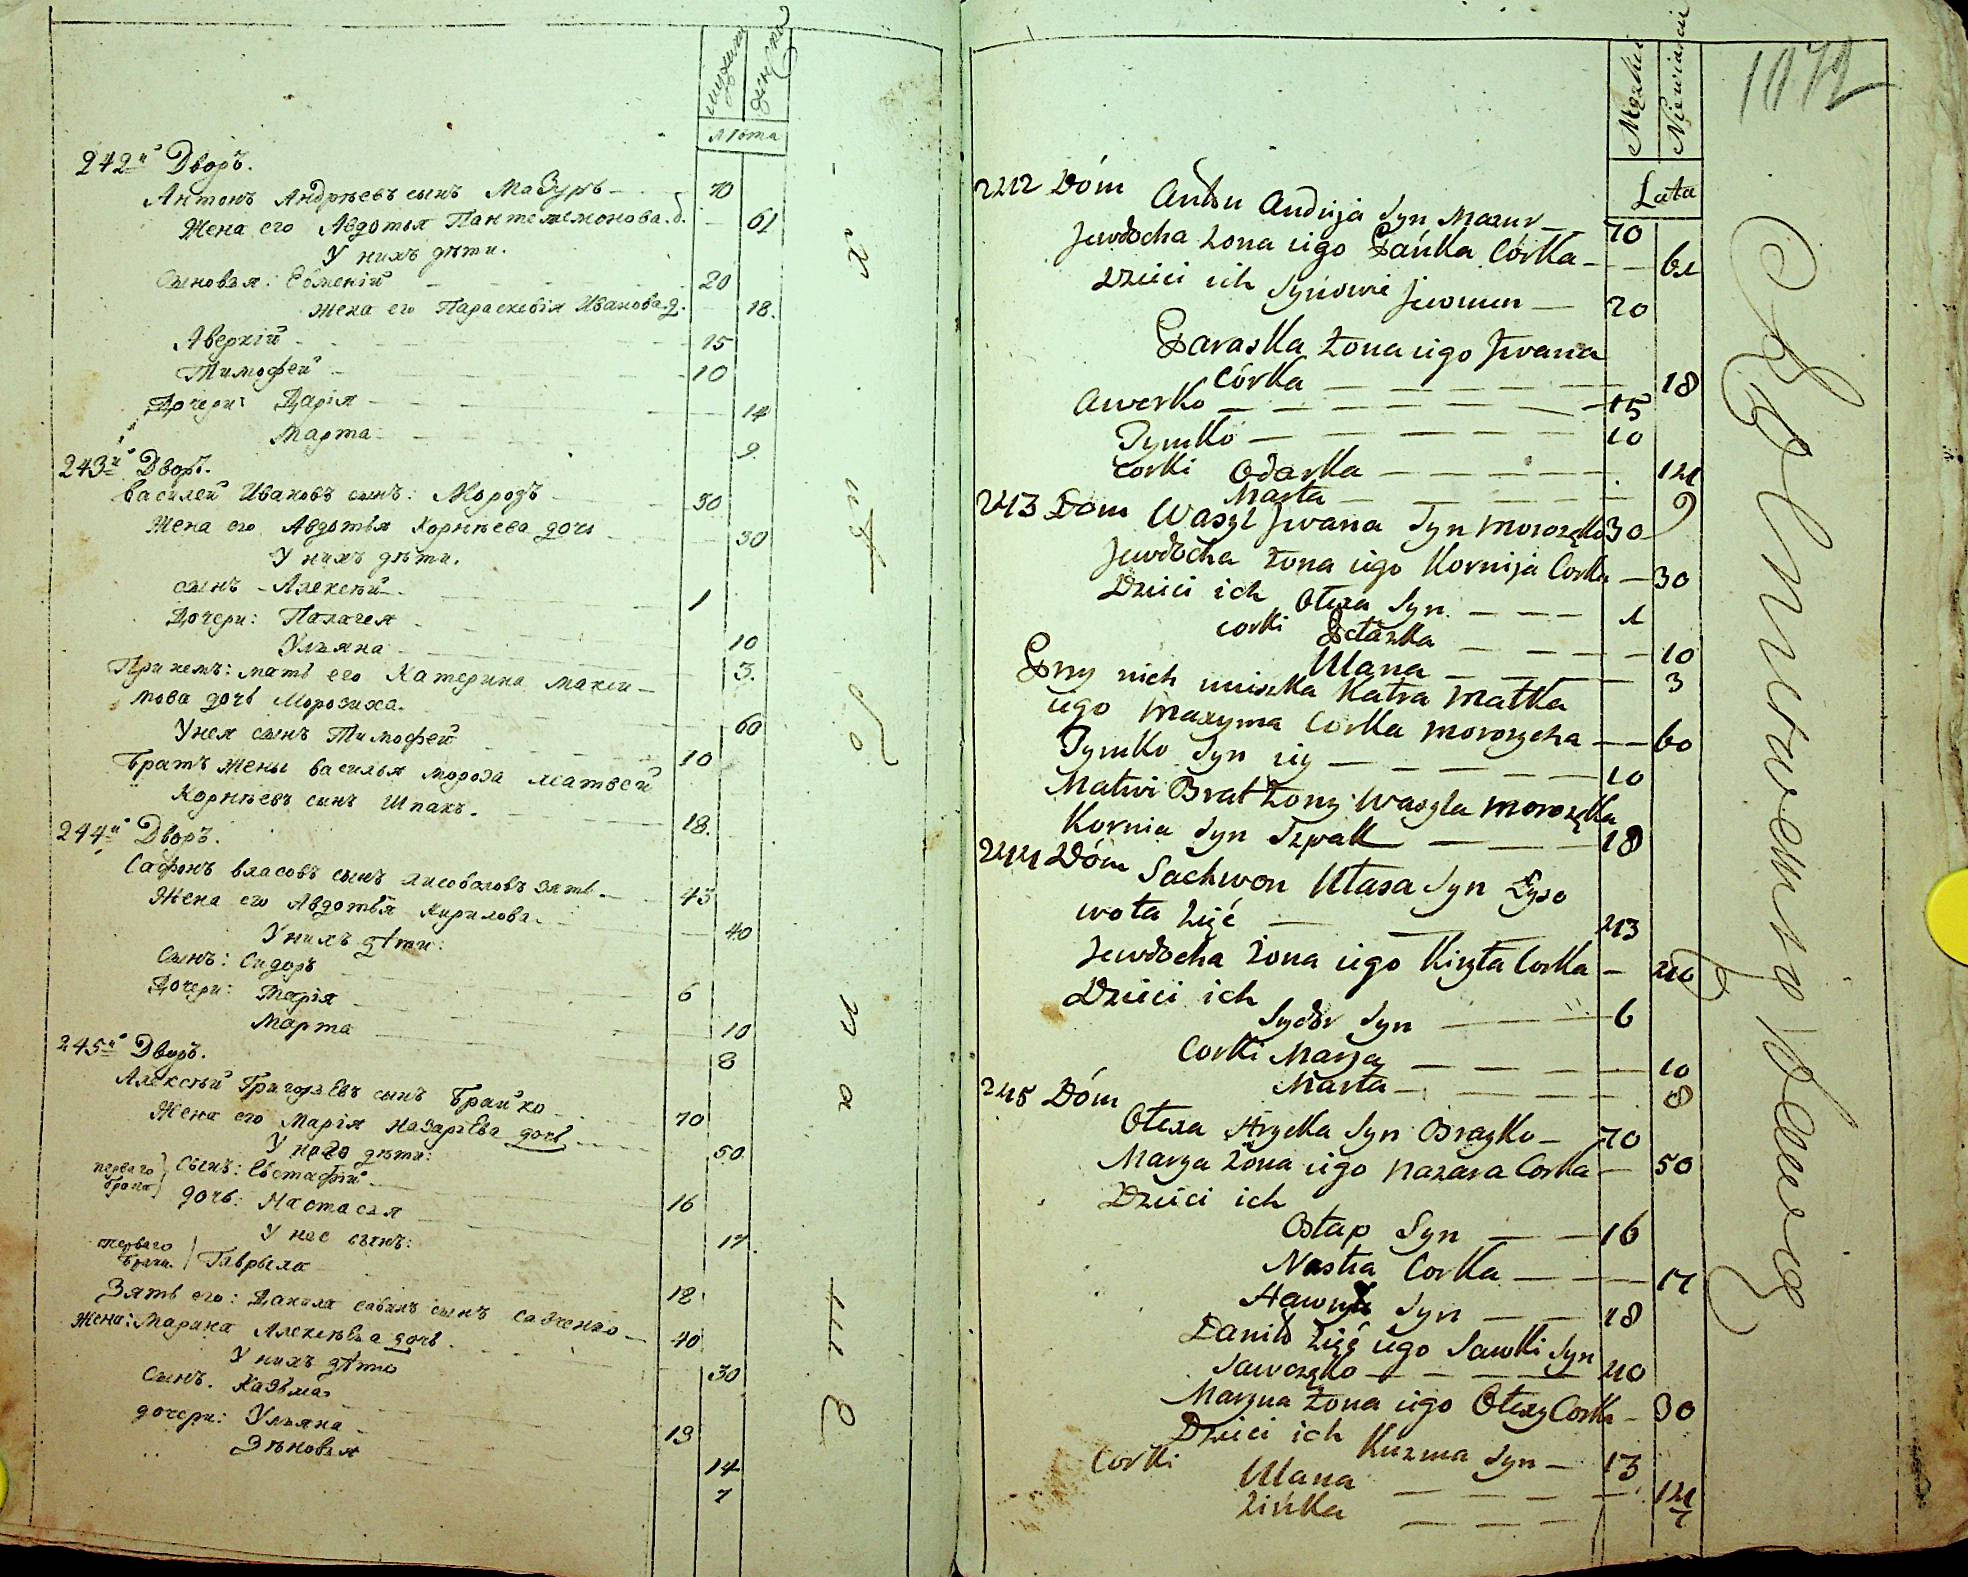 мужеска
женска
лѣта
242й Дворъ.
Антонъ Андрѣевъ сынъ Мазуръ 70
Жена его Авдотья Пантелемонова д. 61
У нихъ дѣти.
Сыновья: Евменій 20
жена его Параскевія Иванова д. 18.
Аверкій 15
Тимофей 10
Дочери: Дарія 14
Марта 9.
243й Дворъ.
Василей Ивановъ сынъ: Морозъ 30
Жена его Авдотья Корнѣева дочь 30
У нихъ дѣти.
сынъ - Алексѣй 1
Дочери: Палагея 10
Ульяна 3.
При немъ: мать его Катерина макси-
мова дочь Морозиха. 60
У нея сынъ Тимофей 10
Братъ жены василья мороза матвей
Корнѣевъ сынъ Шпакъ. 18.
244й Дворъ.
Сафонъ власовъ сынъ лисоволовъ зять 43
Жена его Авдотья Кирилова 40
У нихъ дѣти:
Сынъ: Сидоръ 6
Дочери: Марія 10
Марта 8
245й Дворъ.
Алексѣй Григорьевъ сынъ Брайко 70
Жена его Марія Назарьева дочь 50
У него дѣти:
перваго брака Сынъ: Евстафій 16
дочь: Настасья 17.
У нее сынъ:
перваго брака Гаврыло 18
Зять его: Данило савинъ сынъ Савченко 40
Жена: Марина Алексѣева дочь 30
У нихъ дѣти
Сынъ. Казьма 13
дочери: Ульяна 14
Зѣновья 7
Męzkiei
Niewiasciei
Lata
1072
242 Dóm Anton Andrija Syn Mazur 70
Jewdocha żona iego Pańka Córka 61
Dzieci ich Synowie Jewmen 20
Paraska żona iego Jwana
Córka 18
Awerko 15
Tymko 10
Corki Odarka 14
Marta 9
243 Dom Wasyl Jwana Syn Morozęko 30
Jewdocha żona iego Kornija Corka 30
Dzieci ich Ołexa Syn 1
Corki Pełażka 10
Ulana 3
Przy nich mieszka Katra Matka
iego Maxyma Corka Morozycha 60
Tymko Syn iey 10
Matwi Brat żony Wasyla Morozęka
Kornia Syn Szpak 18
244 Dóm Sachwon Ułasa Syn Łyso
woła Zięć 43
Jewdocha żona iego Kiryła Corka 40
Dzieci ich
Sydor Syn 6
Corki Marya 10
Marta 8
245 Dóm
Ołexa Hrycka Syn Brayko 70
Marya żona iego Nazara Corka 50
Dzieci ich
Ostap Syn 16
Nastia Corka 17
Syn 18
Daniło Zięć iego Sawki Syn
Sawczęko 40
Maryna żona iego Ołexy Corka 30
Dzieci ich Kuzma Syn 13
Corki Ulana 14
Zińka 7